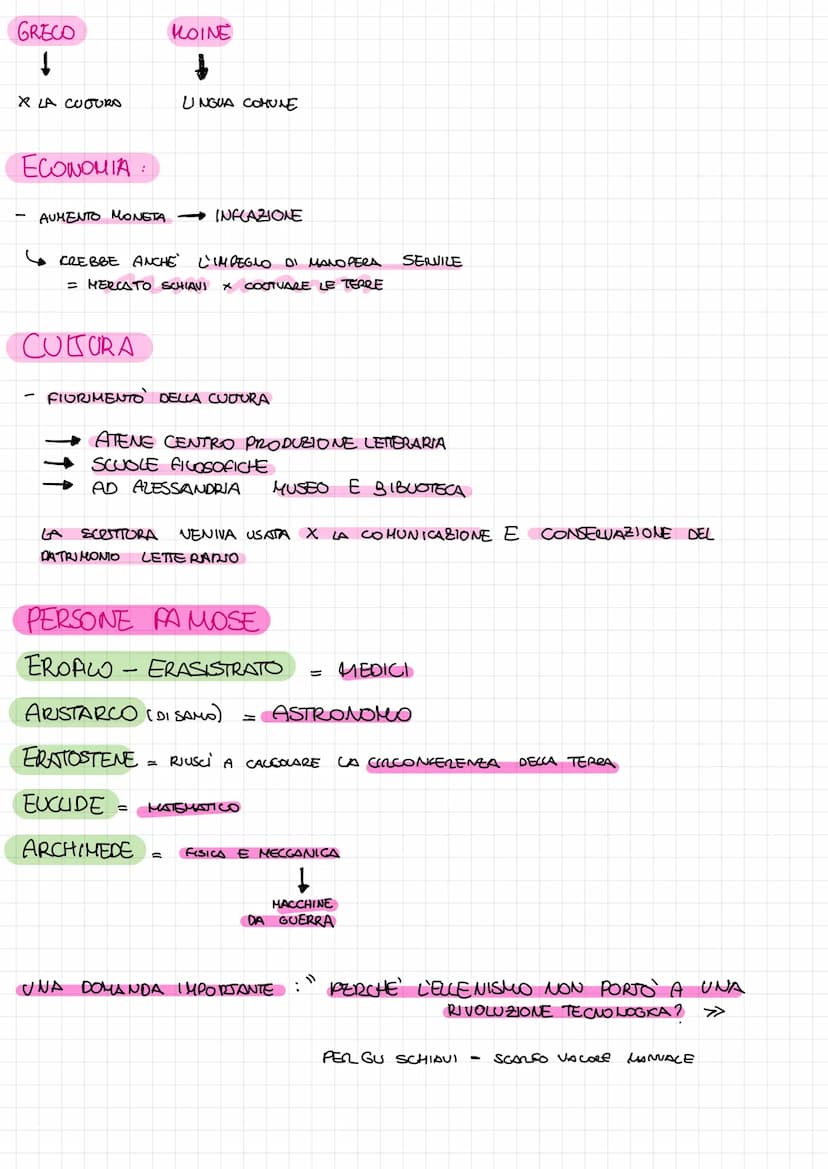 GRECO KOINÈ
↓ ↓
X LA CULTURA LINGUA COMUNE
ECONOMIA:
- AUMENTO MONETA → INFLAZIONE
↳ CREBBE ANCHE L'IMPEGLO DI MANOPERA SERVILE
= MERCATO SCHIAVI X COLTIVARE LE TERRE
CULTURA
- FIORIMENTO DELLA CULTURA
→ ATENE CENTRO PRODUZIONE LETTERARIA
→ SCUOLE FILOSOFICHE
→ AD ALESSANDRIA MUSEO E BIBLIOTECA
LA SCRITTURA VENIVA USATA X LA COMUNICAZIONE E CONSERVAZIONE DEL
PATRIMONIO LETTERARIO
PERSONE FAMOSE
EROFILO - ERASISTRATO = MEDICI
ARISTARCO (DI SAMO) = ASTRONOMO
ERATOSTENE = RIUSCÌ A CALCOLARE LA CIRCONFERENZA DELLA TERRA
EUCLIDE = MATEMATICO
ARCHIMEDE = FISICA E MECCANICA
↓
MACCHINE
DA GUERRA
UNA DOMANDA IMPORTANTE : " PERCHÈ L'ELLENISMO NON PORTÒ A UNA
RIVOLUZIONE TECNOLOGICA? >>
PER GLI SCHIAVI - SCARSO VALORE MANUALE